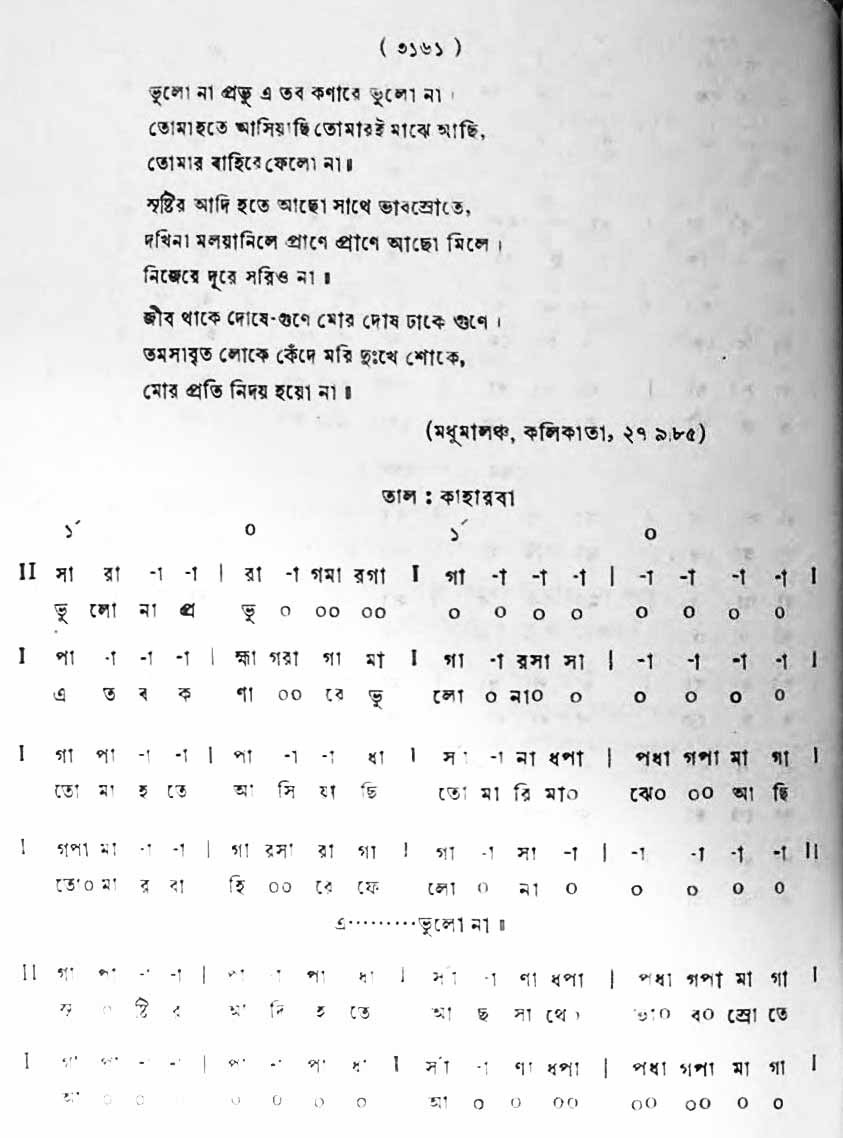 ( ৩১৬১ )
ভুলো না প্রভু এ তব কণারে ভুলো না ।
তোমাহতে আসিয়াছি তোমারই মাঝে আছি,
তোমার বাহিরে ফেলো না ॥
সৃষ্টির আদি হতে আছো সাথে ভাবস্রোতে,
দখিনা মলয়ানিলে প্রাণে প্রাণে আছো মিলে ।
নিজেরে দূরে সরিও না ॥
জীব থাকে দোষে-গুণে মোর দোষ ঢাকে গুণে ।
তমসাবৃত লোকে কেঁদে মরি দুঃখে শোকে,
মোর প্রতি নিদয় হয়ো না ॥
(মধুমালঞ্চ, কলিকাতা, ২৭ ৯.৮৫)
তাল : কাহারবা
১´ ০ ১´ ০
II সা রা -া -া | রা -া গমা রগা I গা -া -া -া | -া -া -া -া I
ভু লো না প্র ভু ০ ০০ ০০ ০ ০ ০ ০ ০ ০ ০ ০
I পা -া -া -া | হ্মা গরা গা মা I গা -া রসা সা | -া -া -া -া I
এ ত ব ক ণা ০০ রে ভু লো ০ না০ ০ ০ ০ ০ ০
I গা পা -া -া | পা -া -া ধা I র্সা -া না ধপা | পধা গপা মা গা I
তো মা হ তে আ সি য়া ছি তো মা রি মা০ ঝে০ ০০ আ ছি
I গপা মা -া -া | গা রসা রা গা I গা -া সা -া | -া -া -া -া II
তো০ মা র বা হি ০০ রে ফে লো ০ না ০ ০ ০ ০ ০
এ·········ভুলো না ॥
II গা পা -া -া | পা -া পা ধা I র্সা -া ণা ধপা | পধা গপা মা গা I
সৃ ০ ষ্টি র আ দি হ তে আ ছ সা থে০ ভা০ ব০ স্রো তে
I গা পা -া -া | পা -া পা ধা I র্সা -া ণা ধপা | পধা গপা মা গা I
আ ০ ০ ০ ০ ০ ০ ০ আ ০ ০ ০০ ০০ ০০ ০ ০